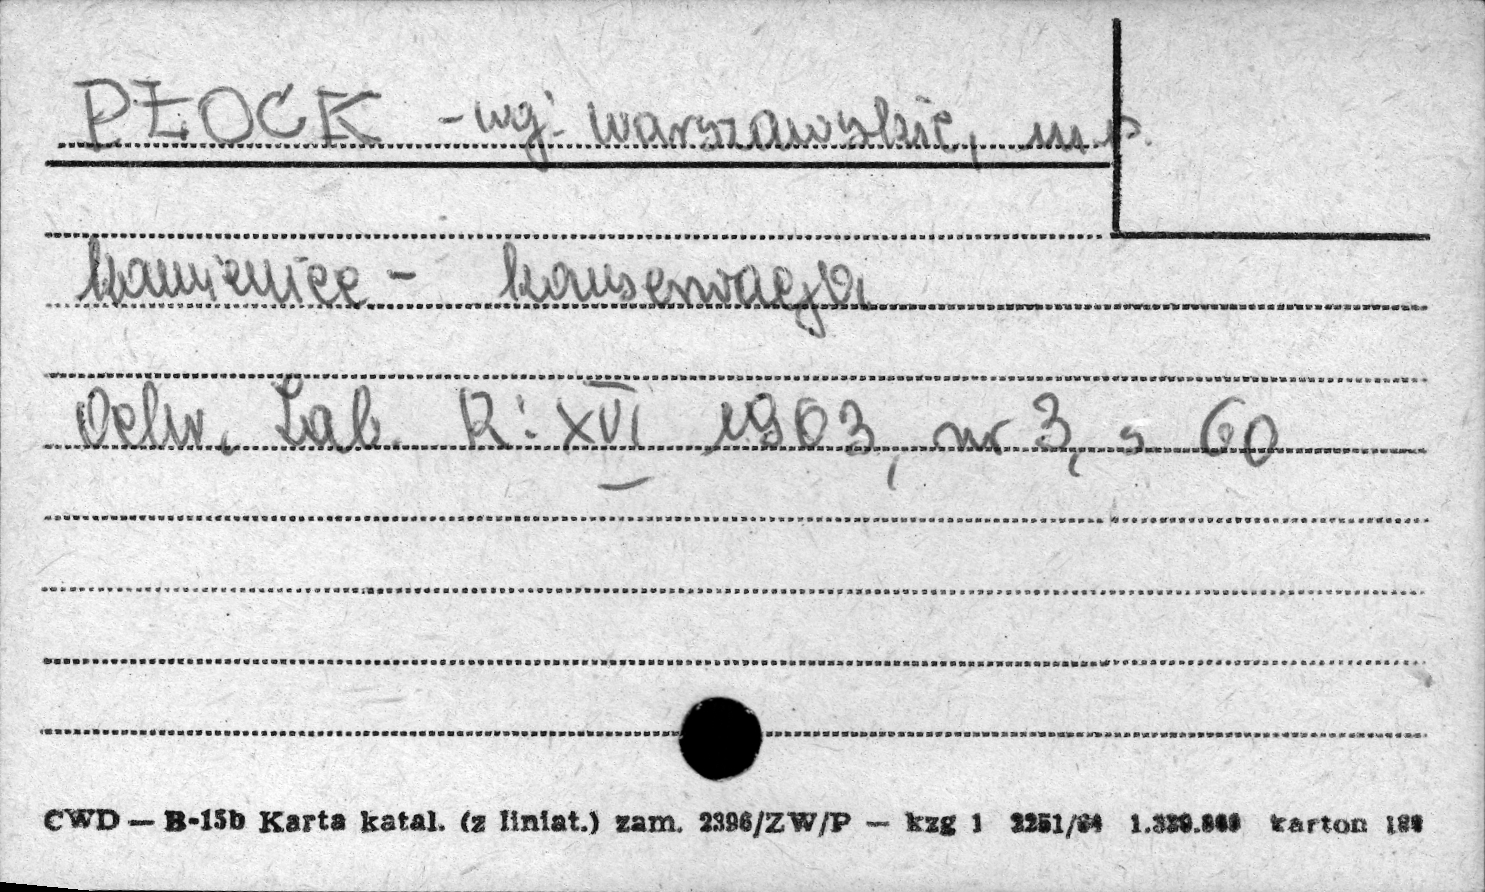 PŁOCK - woj. warszawskie, m.p.
kamienice - konserwacja
Ochr. Zab. R: XVI 1963, nr 3, s 60
CWD — B-15b Karta katal. (z liniat.) zam. 2396/ZW/P — kzg 1 2251/64 karton